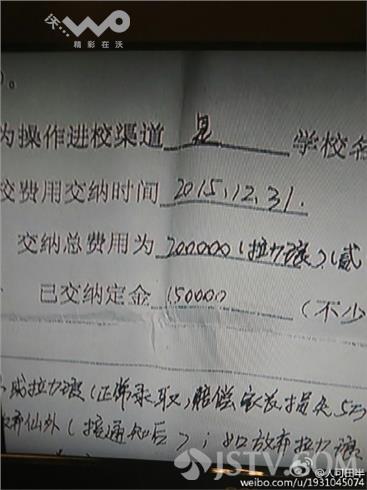 沃.wo
精彩在沃
)。
为操作进校渠道 是 学校名
校费用交纳时间 2015.12.31.
交纳总费用为 200000(拉力琅)(贰
已交纳定金 150000 (不少
成拉力琅(正常录取)赔偿家长损失5万
(接通知后);如放弃拉力琅
JSTV.com
@人可田半
weibo.com/u/1931045074